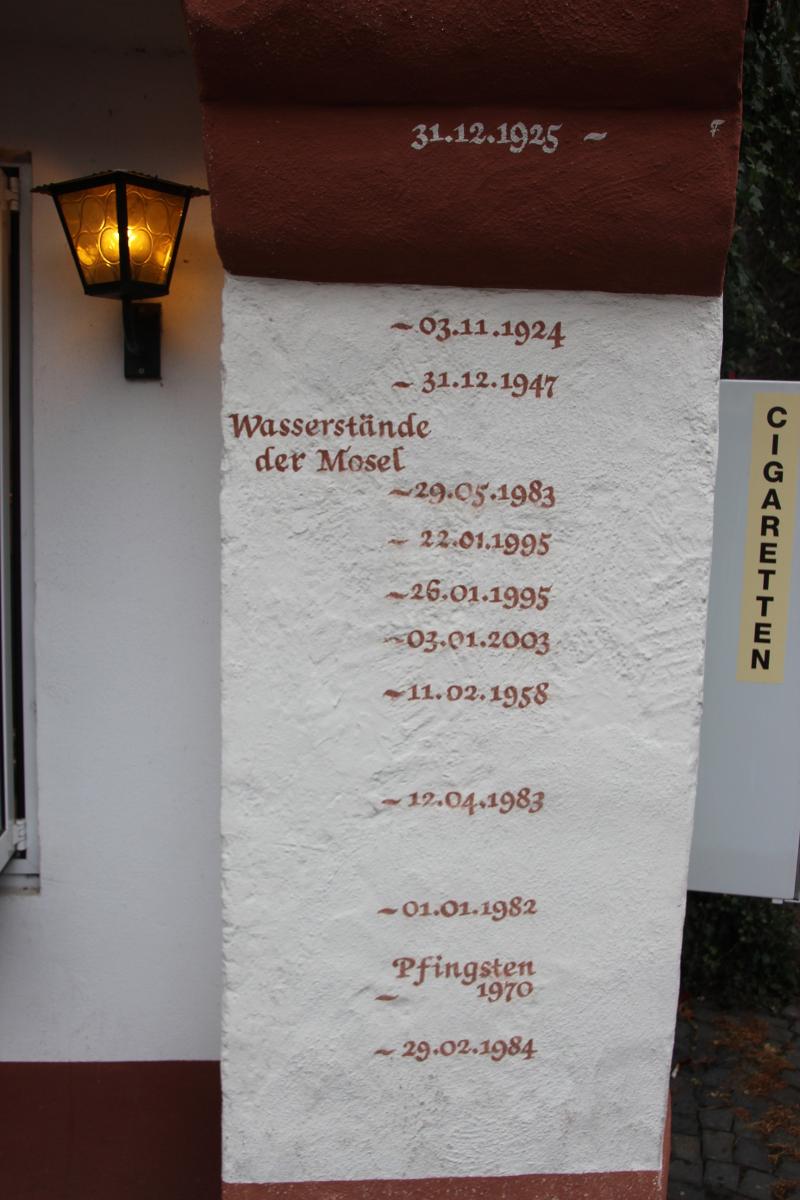 31.12.1925 ~
~ 03.11.1924
~ 31.12.1947
Wasserstände
der Mosel
~ 29.05.1983
~ 22.01.1995
~ 26.01.1995
~ 03.01.2003
~ 11.02.1958
~ 12.04.1983
~ 01.01.1982
Pfingsten
~ 1970
~ 29.02.1984
CIGARETTEN